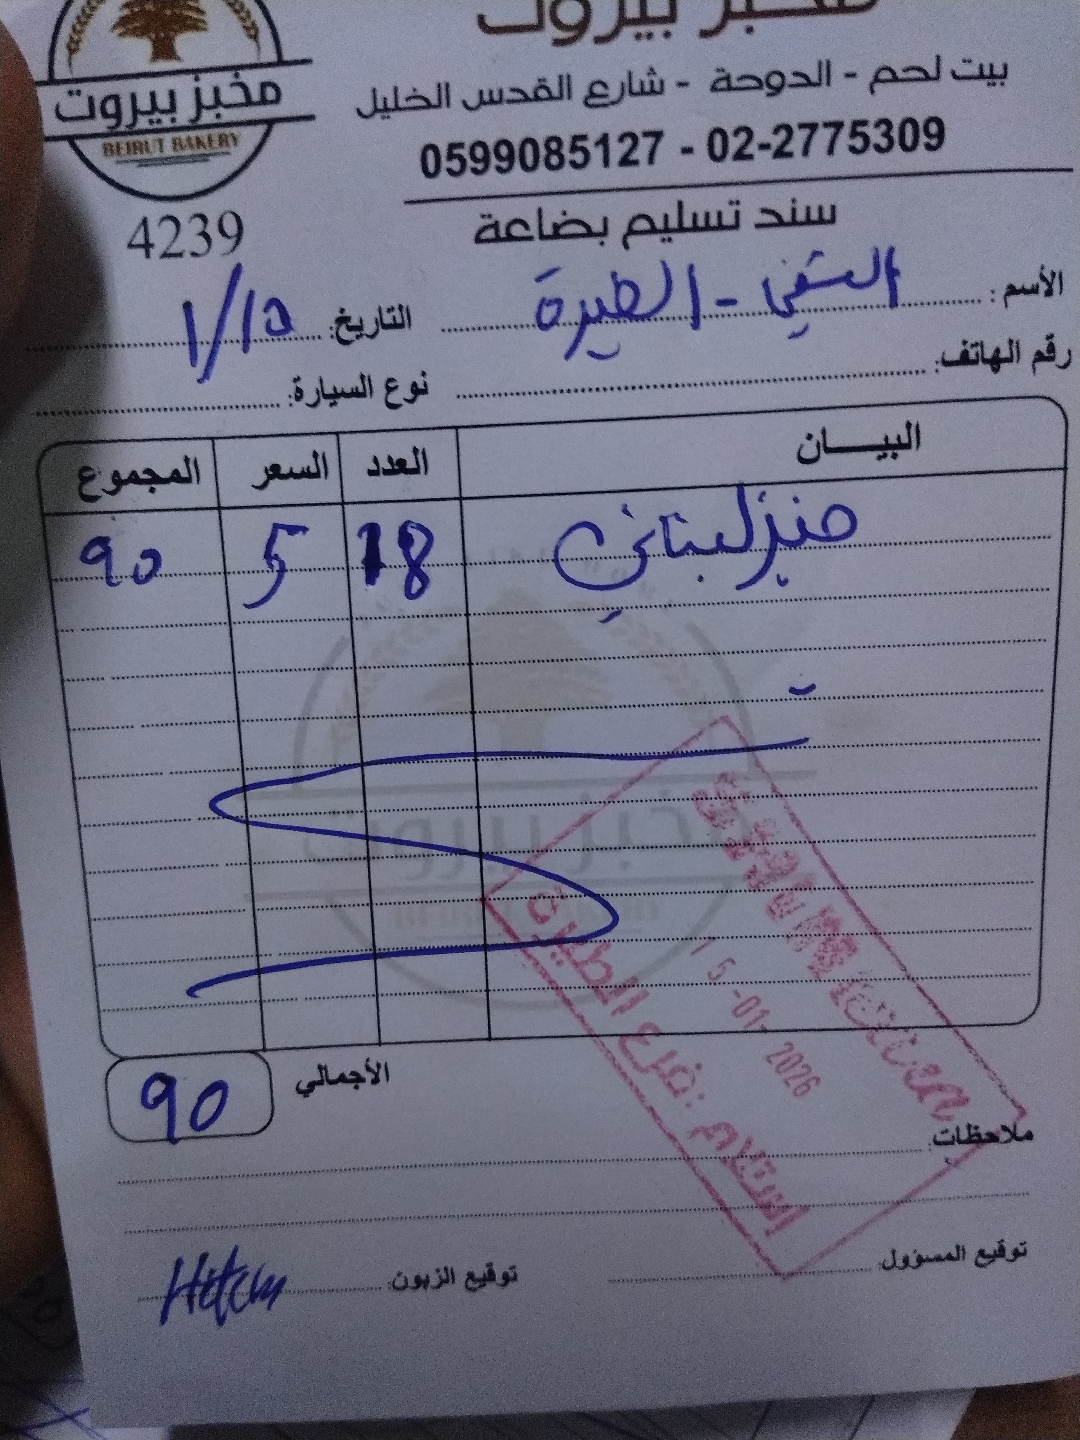 مخبز بيروت
مخبز بيروت
BEIRUT BAKERY
بيت لحم - الدوحة - شارع القدس الخليل
0599085127 - 02-2775309
4239
سند تسليم بضاعة
الأسم: - الطيرة
التاريخ: 1/15
رقم الهاتف:
نوع السيارة:
البيــــان العدد السعر المجموع
خبز لبناني 18 5 90
مخبز بيروت
15-01-2026
استلام: فرع الطيرة
الأجمالي 90
ملاحظات:
توقيع المسؤول:
توقيع الزبون: